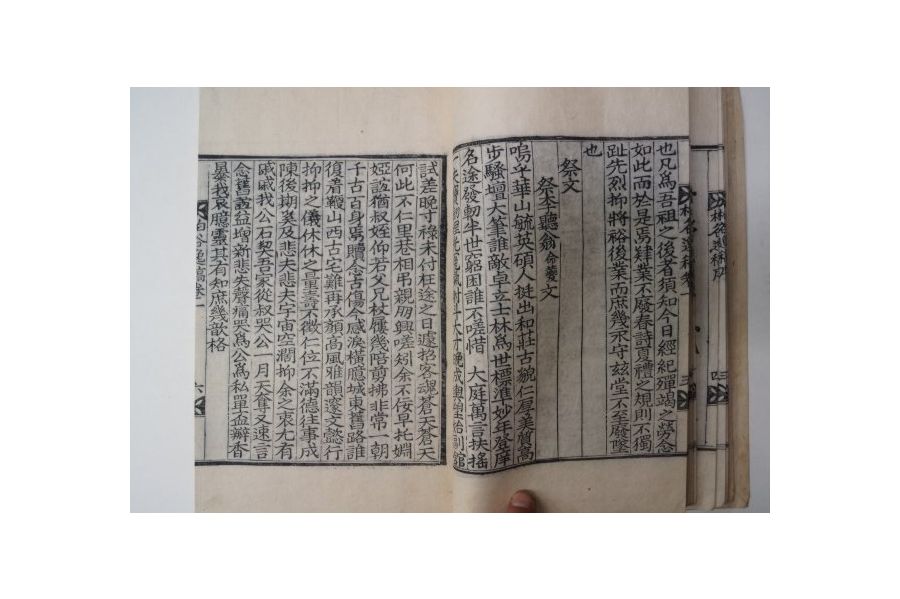 也凡爲吾祖之後者須知今日經紀殫竭之勞念
如此而於是焉肄業不廢春詩夏禮之規則不獨
趾先烈抑將裕後業而庶幾永守玆堂不至廢墜
也
祭文
祭李聽翁命夔文
嗚乎華山毓英碩人挺出和莊古貌仁厚美質高
步騷壇大筆誰敵卓立士林爲世標準妙年登庠
名途發軔半世窮困誰不嗟惜 大庭萬言扶搖
試差晚寸祿未付枉途之日遽招客魂蒼天蒼天
何此不仁里巷相吊親朋興嗟矧余不佞早托姻
婭誼猶叔姪仰若父兄杖屨幾陪剪拂非常一朝
千古百身焉贖念古傷今感淚橫臆城東舊路誰
復着鞭山西古宅難再承顔高風雅韻邃文懿行
抑抑之儀休休之量壽不微仁位不滿德往事成
陳後期奚及悲夫悲夫宇宙空濶抑余之衷尤有
戚戚我公石契吾家從叔哭公一月天奪又速言
念舊誼益埤新悲失聲痛哭爲公爲私單盃瓣香
暴我哀臆靈其有知庶幾歆格
逸稿卷一
六
三
四